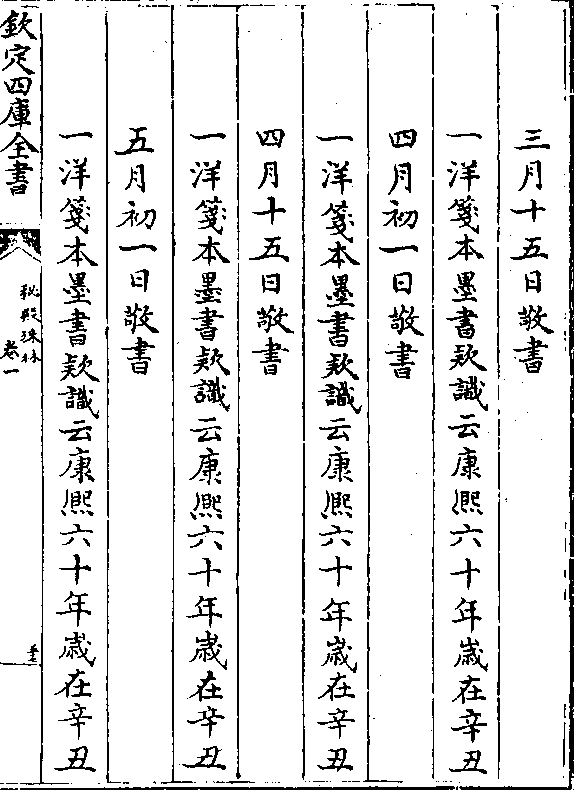 三月十五日敬書
一洋箋本墨書欵識云康熈六十年歳在辛丑
四月初一日敬書
一洋箋本墨書欵識云康熈六十年歳在辛丑
四月十五日敬書
一洋箋本墨書欵識云康熈六十年歳在辛丑
五月初一日敬書
一洋箋本墨書欵識云康熈六十年歳在辛丑
欽定四庫全書
秘殿珠林
卷一